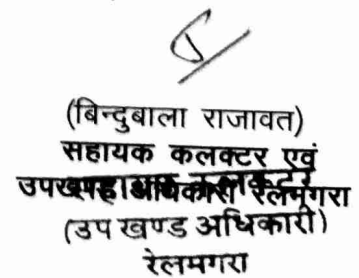 (बिन्दुबाला राजावत)
सहायक कलक्टर एवं
उपखण्ड अधिकारी रेलमगरा
(उप खण्ड अधिकारी)
रेलमगरा